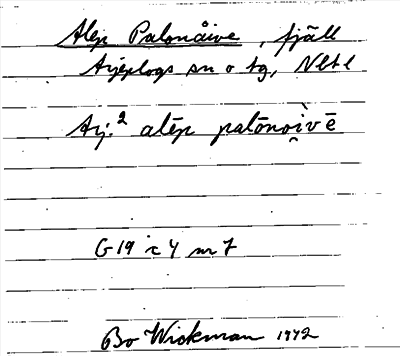 Alep Palonåive, fjäll
Arjeplogs sn o tg, Nbtl
Arj.² alēp palōnoi̭vē
G 19 i c 4 nr 7
Bo Wickman 1942